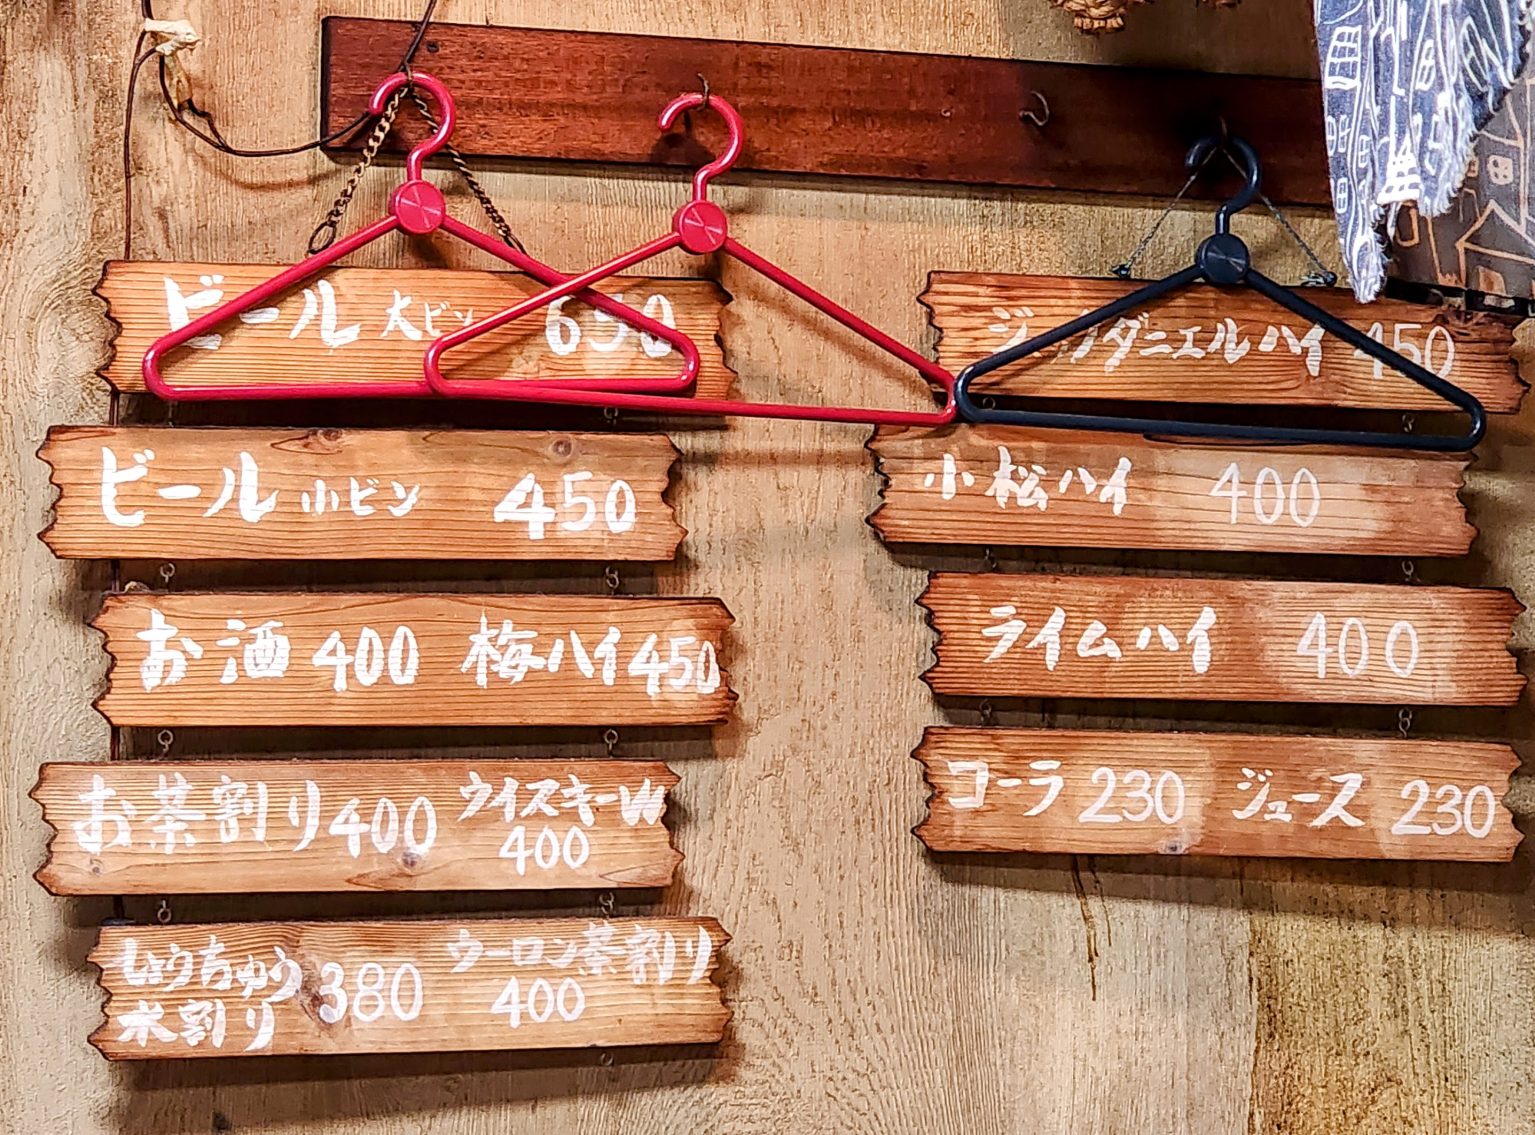 ビール 大ビン 650
ビール 小ビン 450
お酒 400 梅ハイ 450
お茶割り 400 ウイスキーW
400
しょうちゅう 380 ウーロン茶割り
水割り 400
ジャックダニエルハイ 450
小松ハイ 400
ライムハイ 400
コーラ 230 ジュース 230